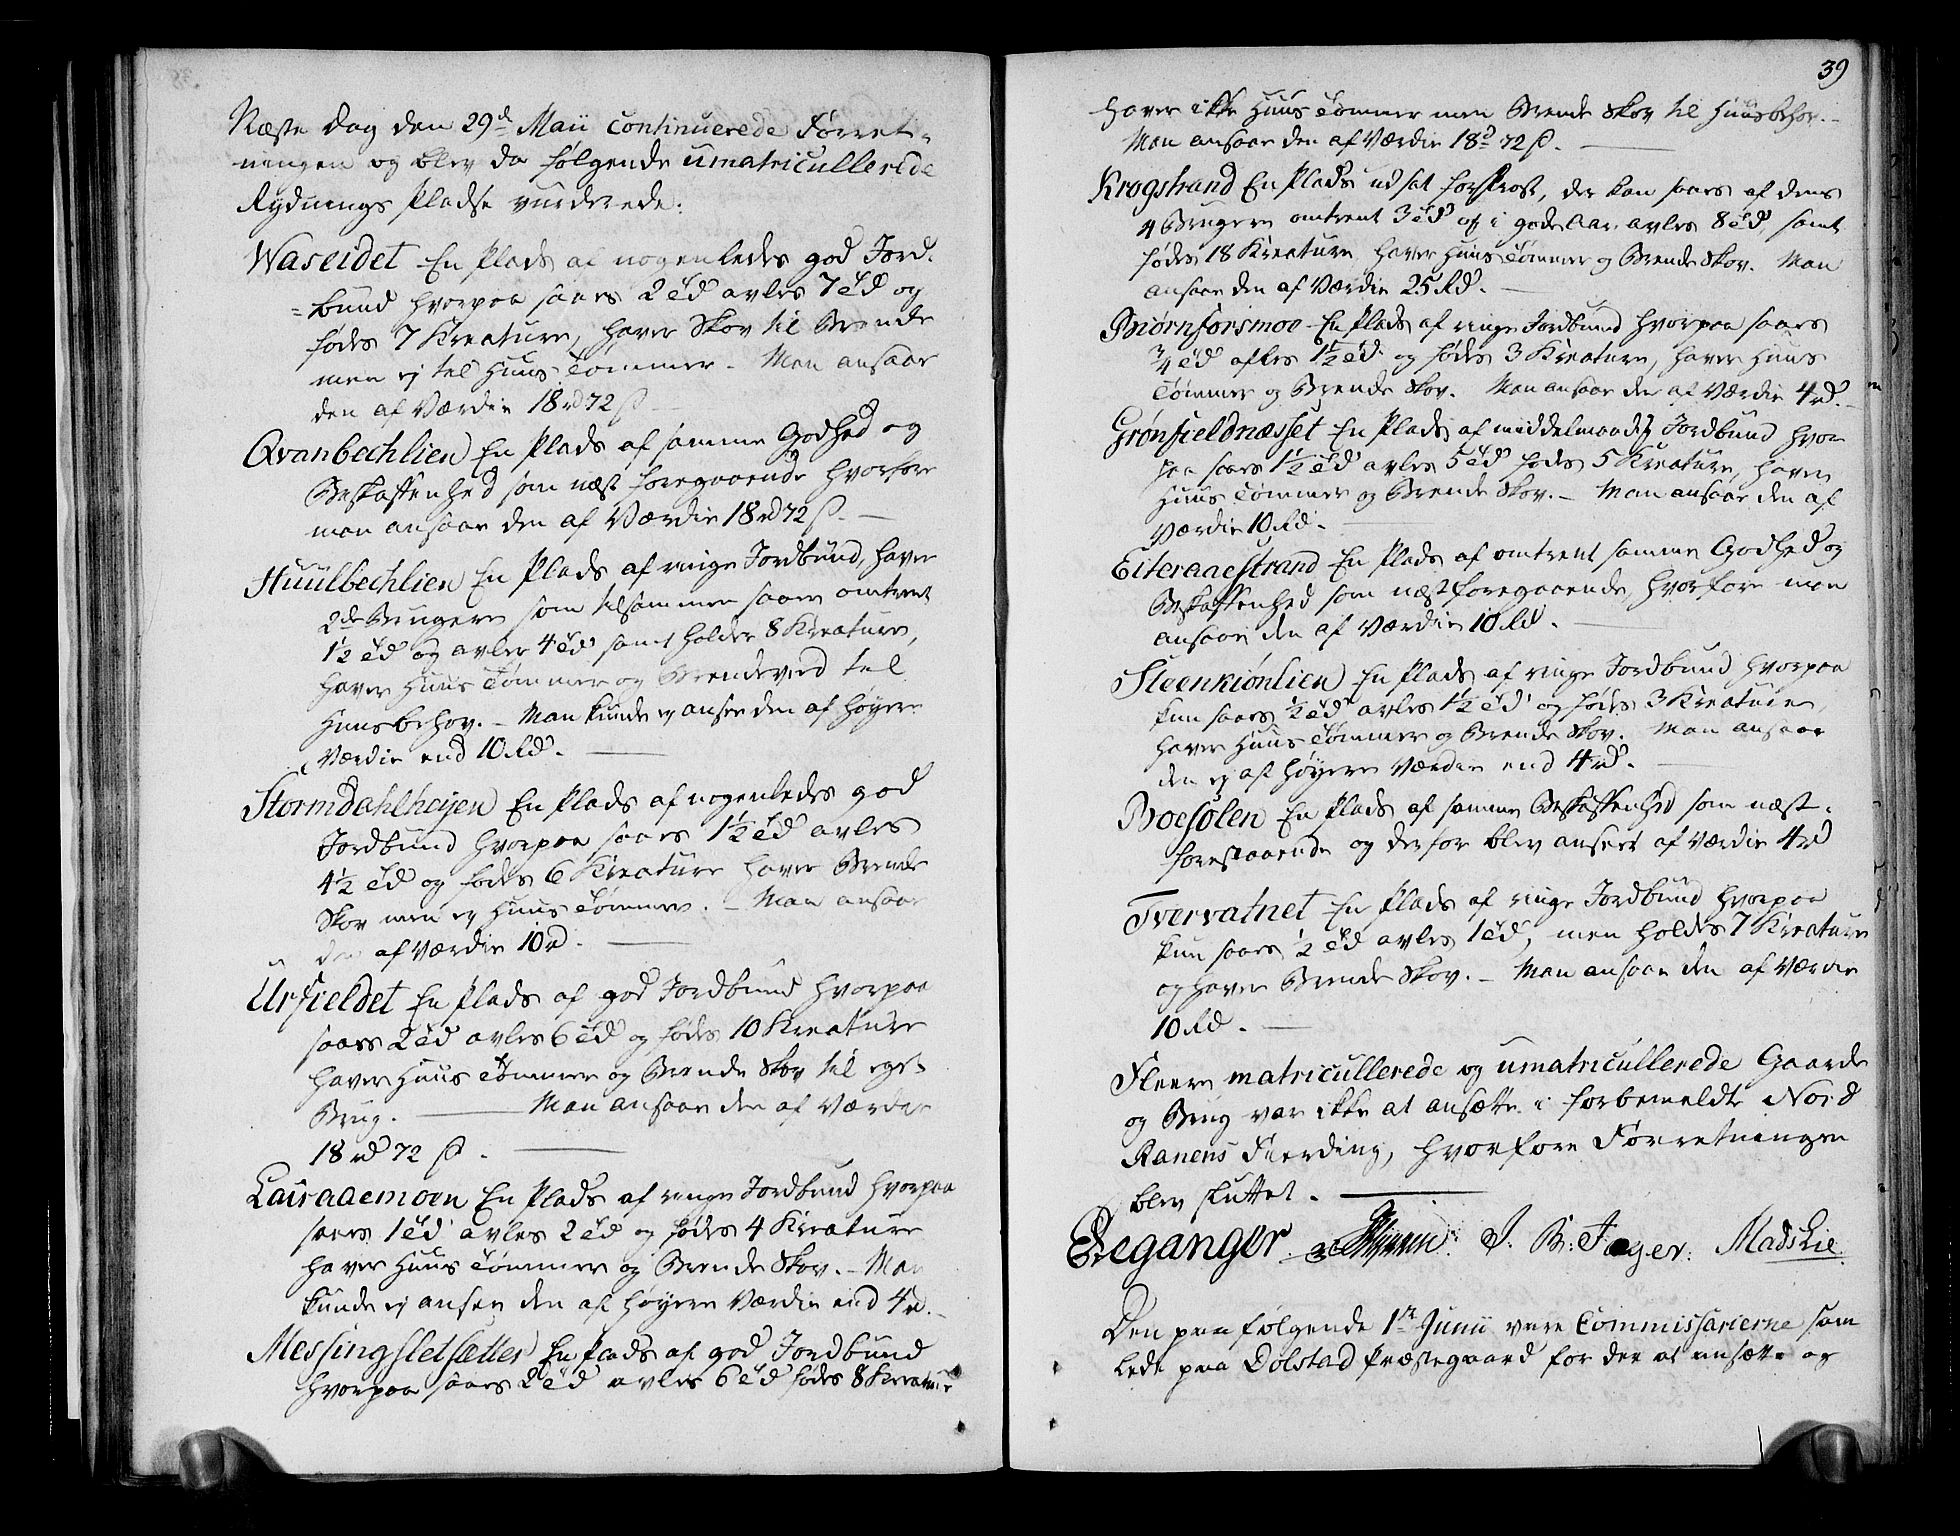 Næste Dag den 29de Maii continuerede Forret-
ningen og blev da følgende umatricullerede
Rydnings Pladse vurderede:
Waseidet En Plads af nogenledes god Jord-
bund hvorpaa saaes 2 Td avles 7 Td og
fødes 7 Kreature, haver Skov til Brende
men ej til Huus Tømmer. Man ansaae
den af Værdie 18 rd 72 ß
Qvanbechlien En Plads af samme Godhed og
Beskaffenhed som næst foregaaende hvorfore
man ansaae den af Værdie 18 rd 72 ß. —
Huulbechlien En Plads af ringe Jordbund, haver
2de Brugere som tilsammen saaer omtrent
1½ Td og avler 4 Td samt holder 8 Kreature,
haver Huus Tømmer og Brendeved til
Huusbehov. – Man kunde ej ansee den af høyere
Værdie end 10 Rd. —
Stormdahlheijen En Plads af nogenledes god
Jordbund hvorpaa saaes 1½ Td avles
4½ Td og fødes 6 Kreature haver Brende
Skov men ej Huus Tømmer. – Man ansaae
den af Værdie 10 rd. —
Urfieldet En Plads af god Jordbund hvorpaa
saaes 2 Td avles 6 Td og fødes 10 Kreature
haver Huus Tømmer og Brende Skov til eget
Brug. — Man ansaae den af Værdie
18 rd 72 ß. —
Lairaaemoen En Plads af ringe Jordbund hvorpaa
saaes 1 Td avles 2 Td og fødes 4 Kreature
haver Huus Tømmer og Brende Skov. – Man
kunde ej ansee den af høyere Værdie end 4 rd. –
Messingsletsetter En Plads af god Jordbund
hvorpaa saaes 2 Td avles 6 Td fødes 8 Kreature
39
haver ikke Huus Tømmer men Brende Skov til Huusbehov. –
Man ansaae den af Værdie 18 d 72 ß. —
Krogstrand En Plads udsat for Frost, der kan saaes af dens
4 Brugere omtrent 3 Td og i gode Aar avles 8 Td, samt
fødes 18 Kreature, haver Huus Tømmer og Brende Skov. Man
ansaae den af Værdie 25 Rd. —
Biørnforsmoe En Plads af ringe Jordbund hvorpaa saaes
¾ Td afles 1½ Td. og fødes 3 Kreature, haver Huus
Tømmer og Brende Skov. Man ansaae den af Værdie 4 rd. –
Grønfieldnæsset En Plads af middelmaadig Jordbund hvor
paa saaes 1½ Td avles 5 Td fødes 5 Kreature, haver
Huus Tømmer og Brende Skov. – Man ansaae den af
Værdie 10 Rd. —
Eiteraaestrand En Plads af omtrent samme Godhed og
Beskaffenhed som næstforegaaende, hvorfore man
ansaae den af Værdie 10 Rd. —
Steenkiønlien En Plads af ringe Jordbund hvorpaa
kun saaes ½ Td avles 1½ Td og fødes 3 Kreature,
haver Huus Tømmer og Brende Skov. Man ansaae
den ej af høyere Værdie end 4 rd. —
Boesølen En Plads af samme Beskaffenhed som næst-
forestaaende og derfor blev anseet af Værdie 4 rd
Tvervatnet En Plads af ringe Jordbund hvorpaa
kun saaes ½ Td avles 1 Td, men holdes 7 Kreature
og haver Brende Skov. – Man ansaae den af Værdie
10 Rd. —
Fleere matricullerede og umatricullerede Gaarde
og Brug var ikke at ansætte i forbemeldte Nord
Ranens Fierding, hvorfore Forretningen
blev sluttet. —
Geganger J. B: Jæger: Mads Lie.
Den paafølgende 1te Junii vare Commissarierne sam
lede paa Dolstad Præstegaard for der at ansætte og